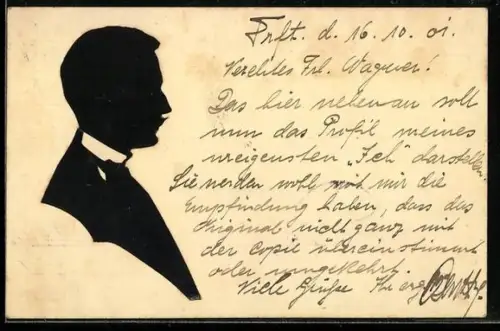 Frft. d. 16.10.01.
Verehrtes Frl. Wagner!
Das hier nebenan soll
nun das Profil meines
ureigensten „Ich" darstellen.
Sie werden wohl mit mir die
Empfindung haben, dass das
Original nicht ganz mit
der Copie übereinstimmt
oder umgekehrt.
Viele Grüße Ihr erg.